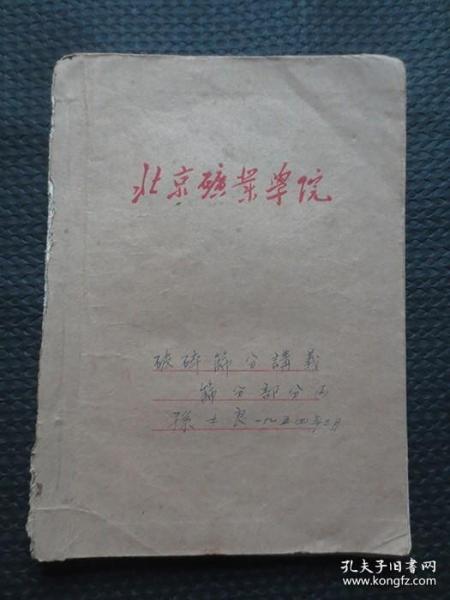 北京礦業学院
破碎篩分講義
篩分部分
孫士良 一九五四年二月
孔夫子旧书网
www.kongfz.com